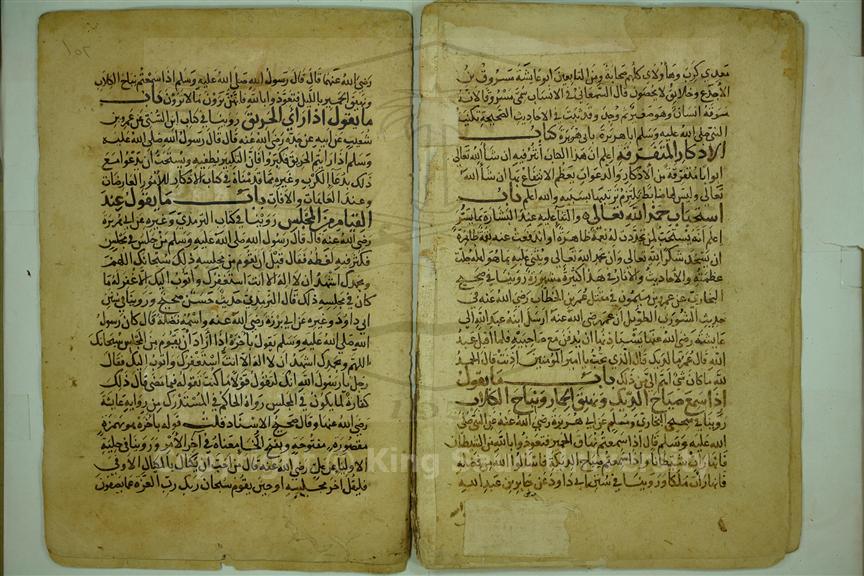 معدي كرب وهؤلاء كلهم صحابة ومن التابعين ابو عائشة مسروق بن
الاجدع وخلايق لا يحصون قال السمعاني في الانساب سمي مسروقا لانه
سرقه انسان وهو صغير ثم وجد وقد ثبت في الاحاديث الصحيحة تكنية
النبي صلى الله عليه وسلم ابا هريرة بابي هريرة كتاب
الاذكار المتفرقة اعلم ان هذا الكتاب انثر فيه ان شا الله تعالى
ابوابا متفرقة من الاذكار والدعوات يعظم الانتفاع بها ان شا الله
تعالى وليس لها ضابط يلتزم ترتيبها بسببه والله اعلم باب
استحباب حمد الله تعالى والثنا عليه عند البشارة بما يسره
اعلم انه يستحب لمن تجددت له نعمة ظاهرة او اندفعت عنه نقمة ظاهرة
ان يسجد شكرا لله تعالى وان يحمد الله تعالى ويثني عليه بما هو اهله
والاحاديث والاثار في هذا كثيرة مشهورة روينا في صحيح
البخاري عن عمرو بن ميمون في مقتل عمر بن الخطاب رضي الله عنه في
حديث الشورى الطويل ان عمر رضي الله عنه ارسل ابنه عبد الله الى
عايشة رضي الله عنها يستاذنها ان يدفن مع صاحبيه فلما اقبل عبد
الله قال عمر ما لديك قال الذي تحب يا امير المومنين اذنت قال الحمد
لله ما كان شي اهم الي من ذلك باب ما يقول
اذا سمع صياح الديك ونهيق الحمار ونباح الكلاب
روينا في صحيحي البخاري ومسلم عن ابي هريرة رضي الله عنه عن النبي صلى
الله عليه وسلم قال اذا سمعتم نهاق الحمير فتعوذوا بالله من الشيطان
فانها رات شيطانا واذا سمعتم صياح الديكة فاسالوا الله من فضله
فانها رات ملكا وروينا في سنن ابي داود عن جابر بن عبد الله
رضي الله عنهما قال قال رسول الله صلى الله عليه وسلم اذا سمعتم نباح الكلاب
ونهيق الحمير بالليل فتعوذوا بالله فانهن يرون ما لا ترون باب
ما يقول اذا راى الحريق روينا في كتاب ابن السني عن عمرو بن
شعيب عن ابيه عن جده رضي الله عنه قال قال رسول الله صلى الله عليه
وسلم اذا رايتم الحريق فكبروا فان التكبير يطفيه ويستحب ان يدعو مع
ذلك بدعا الكرب وغيره مما قدمناه في كتاب الاذكار للامور العارضات
وعند العاهات والافات باب ما يقول عند
القيام من المجلس روينا في كتاب الترمذي وغيره عن ابي هريرة
رضي الله عنه قال قال رسول الله صلى الله عليه وسلم من جلس في مجلس
فكثر فيه لغطه فقال قبل ان يقوم من مجلسه ذلك سبحانك اللهم
وبحمدك اشهد ان لا اله الا انت استغفرك واتوب اليك الا غفر له ما
كان في مجلسه ذلك قال الترمذي حديث حسن صحيح وروينا في سنن
ابي داود وغيره عن ابي برزة رضي الله عنه واسمه نضلة قال كان رسول
الله صلى الله عليه وسلم يقول باخرة اذا اراد ان يقوم من المجلس سبحانك
اللهم وبحمدك اشهد ان لا اله الا انت استغفرك واتوب اليك فقال
رجل يا رسول الله انك لتقول قولا ما كنت تقوله فيما مضى قال ذلك
كفارة لما يكون في المجلس رواه الحاكم في المستدرك من رواية عايشة
رضي الله عنها وقال صحيح الاسناد قلت قوله باخرة هو بهمزة
مقصورة مفتوحة وبفتح الخا ومعناه في اخر الامر وروينا في حلية
الاوليا عن علي رضي الله عنه قال من احب ان يكتال بالمكيال الاوفى
فليقل اخر مجلسه او حين يقوم سبحان ربك رب العزة عما يصفون
King